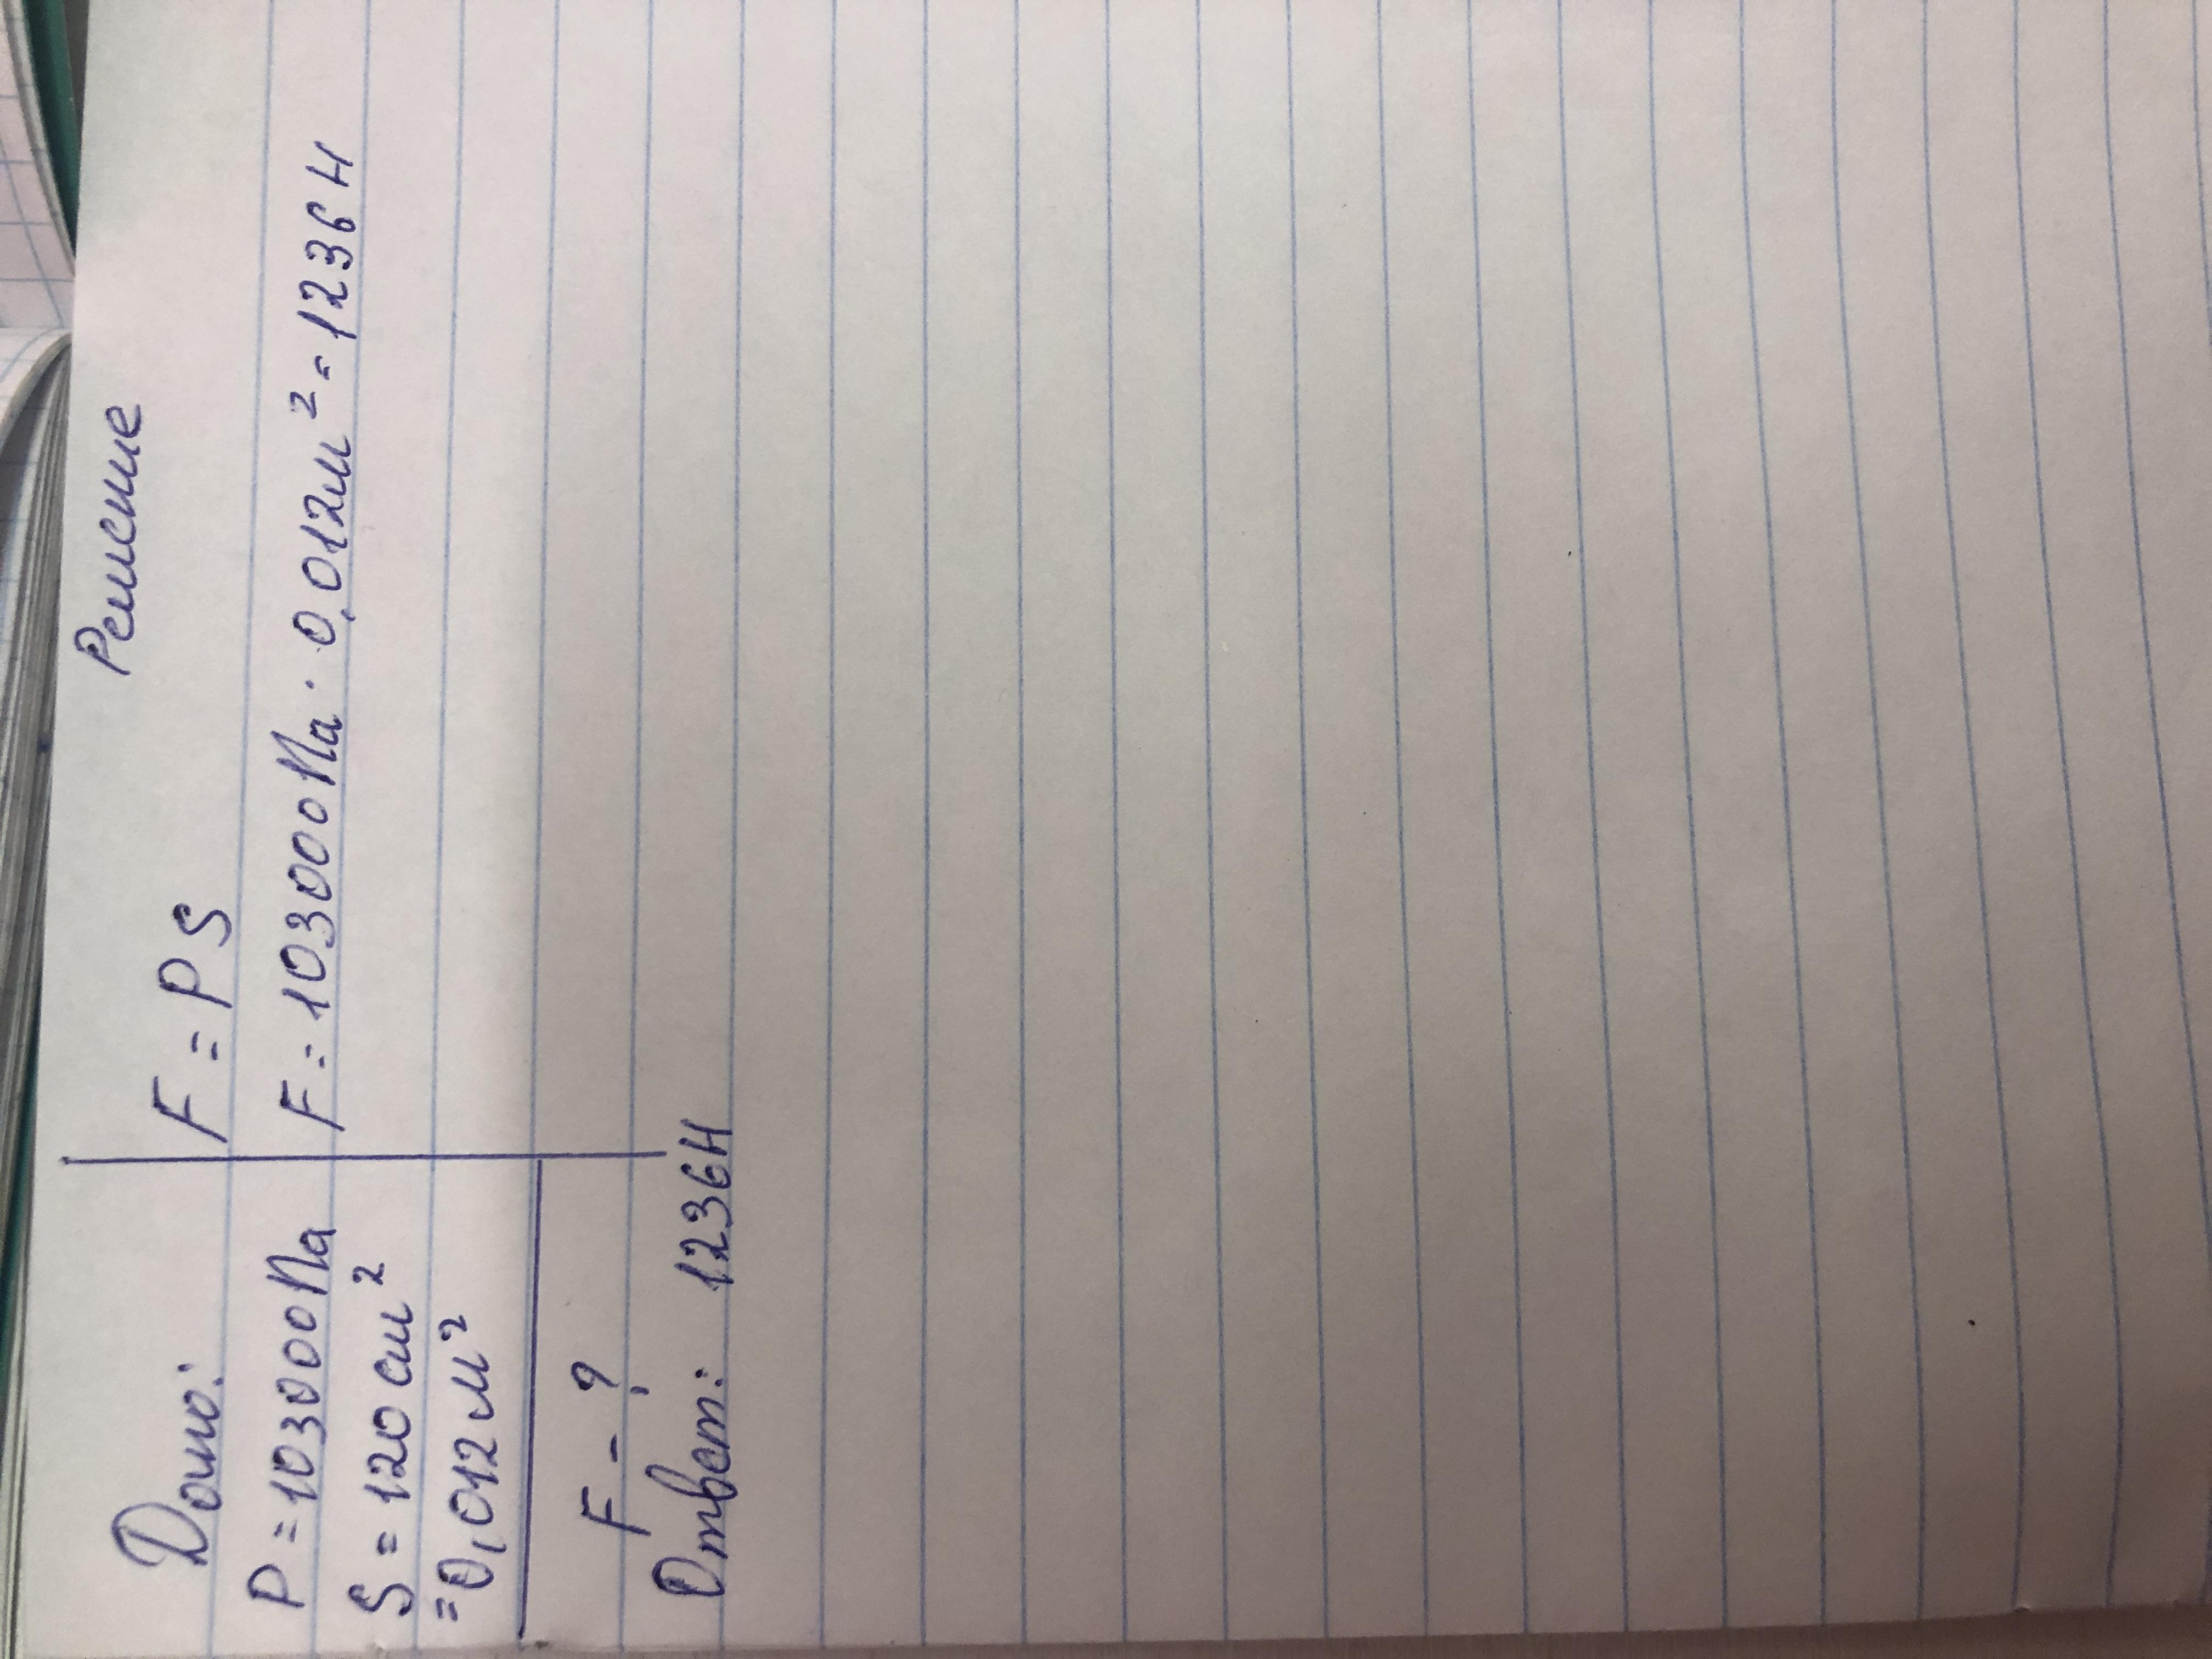 Дано:
P = 103000 Па
S = 120 см²
= 0,012 м²
F - ?
Решение
F = P S
F = 103000 Па · 0,012 м² = 1236 Н
Ответ: 1236 Н